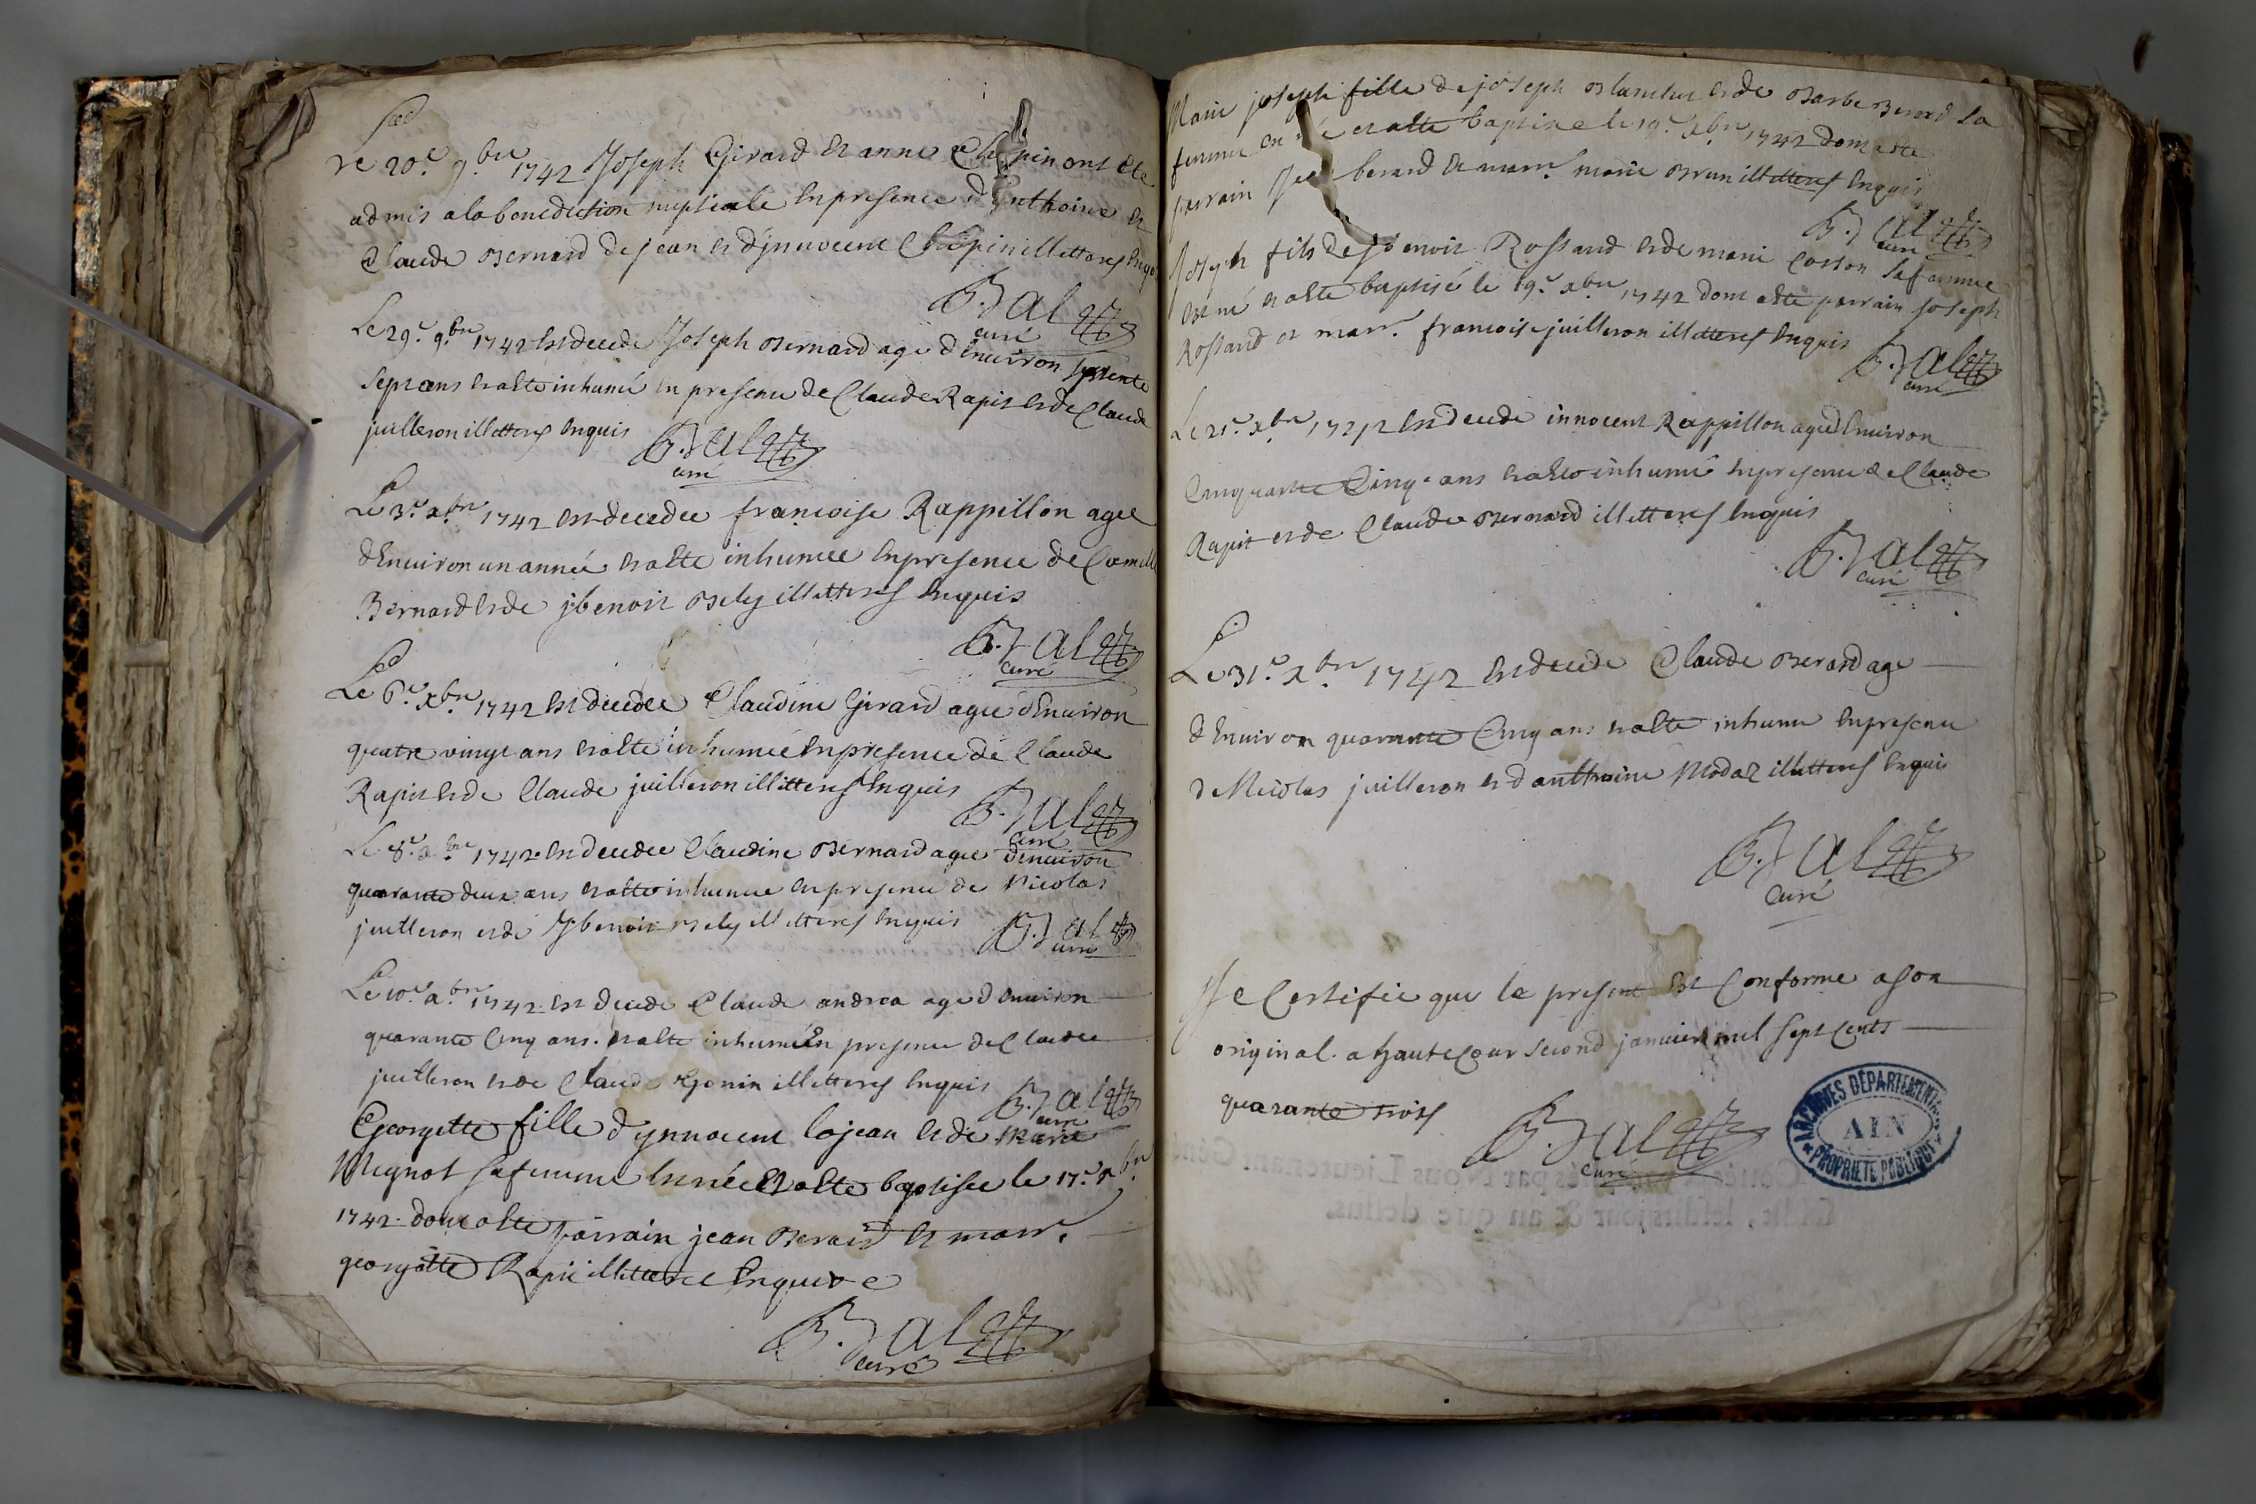 Le 20.e 9.bre 1742 Joseph Girard et anne Chepin ont ete
admis a la benediction nuptiale en presence d'anthoine et
Claude Bernard de jean et d'jnnocent Chepin illetteres enquis
B. jal
curé
Le 29.e 9.bre 1742 est decede Joseph Bernard age d'environ septente
sept ans et a ete inhumé en presence de Claude Rapit et de Claude
juilleron illetteres enquis B. jal
curé
Le 3.e x.bre 1742 est decedee francoise Rappillon agee
d'environ un année et a ete inhumee en presence de
Bernard et de jbenoit Bely illetteres enquis
B. jal
curé
Le 6.e x.bre 1742 est decedee Claudine Girard agee d'environ
quatre vingt ans et a ete inhumée en presence de Claude
Rapit et de Claude juilleron illetteres enquis
B. jal
curé
Le 8.e x.bre 1742 est decedee Claudine Bernard agee d'environ
quarante deux ans et a ete inhumee en presence de Nicolas
juilleron et de jbenoit Bely illetteres enquis B. jal
curé
Le 10.e x.bre 1742 est decede Claude andrea age d'environ
quarante cinq ans. et a ete inhumé en presence de Claude
juilleron et de Claude Gonin illetteres enquis B. jal
curé
Georgette fille d'ynnocent lojean et de Marie
Mignot sa femme est née et a ete baptisee le 17.e x.bre
1742. dont a ete parrain jean Berard et marr.
georgette Rapit illetteree enquise
B. jal
curé
Marie joseph fille de joseph Blanchet et de Barbe Berard sa
femme est née et a ete baptisee le 19.e x.bre 1742 dont a ete
parrain berard et marr. marie Brun illetteres enquis
B. jal
curé
Joseph fils de jbenoit Rossand et de marie Cosson sa femme
est né et a ete baptisé le 19.e x.bre 1742 dont a ete parrain joseph
Rossand et marr. francoise juilleron illetteres enquis
B. jal
curé
Le 21.e x.bre 1742 est decede innocent Rappillon age d'environ
cinquante cinq ans et a ete inhumé en presence de Claude
Rapit et de Claude Bernard illetteres enquis
B. jal
curé
Le 31.e x.bre 1742 est decede Claude Berard age
d'environ quarante cinq ans et a ete inhumé en presence
de Nicolas juilleron et d'anthoine Modaz illetteres enquis
B. jal
curé
Je Certifie que le present est Conforme a son
original. a hautecour second janvier mil sept cents
quarante trois B. jal
curé
ARCHIVES DÉPARTEMENTALES
AIN
PROPRIETE PUBLIQUE